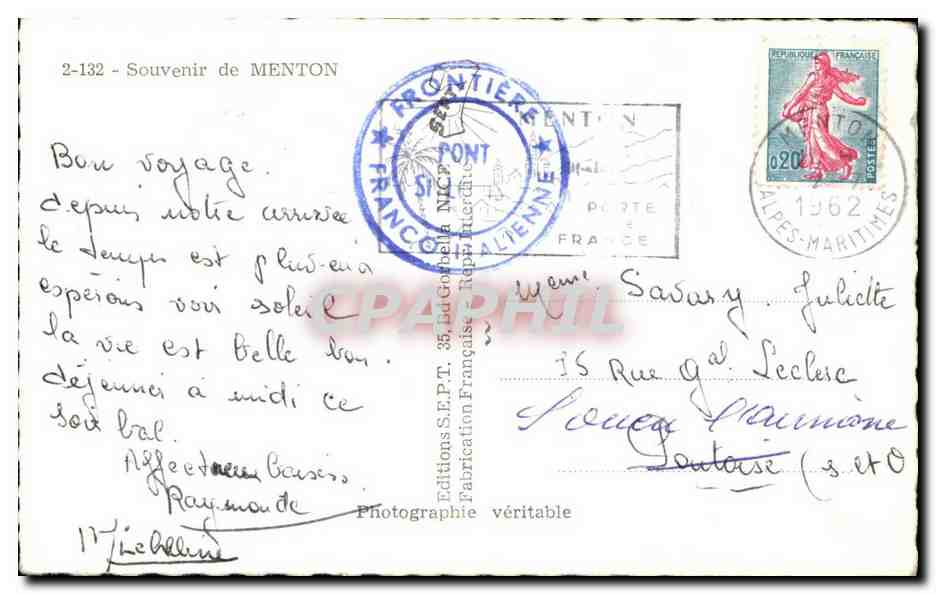 2-132 - Souvenir de MENTON
Bon voyage.
depuis notre arrivée
le temps est pluvieux
espérons voir soleil
la vie est belle bon
déjeuner à midi ce
soir bal.
Baisers
Raymonde
FRONTIÈRE
FRANCO ITALIENNE
PONT
ST
MENTON
PORTE
FRANCE
REPUBLIQUE FRANÇAISE
0,20
POSTES
MENTON
1962
ALPES-MARITIMES
Editions S.E.P.T. 35, Bd Gorbella NICE
Fabrication Française - Repr. Interdite
CPAPHIL
Savary Juliette
35 Rue Gal Leclerc
l'aumône
Pontoise (S et O
Photographie véritable